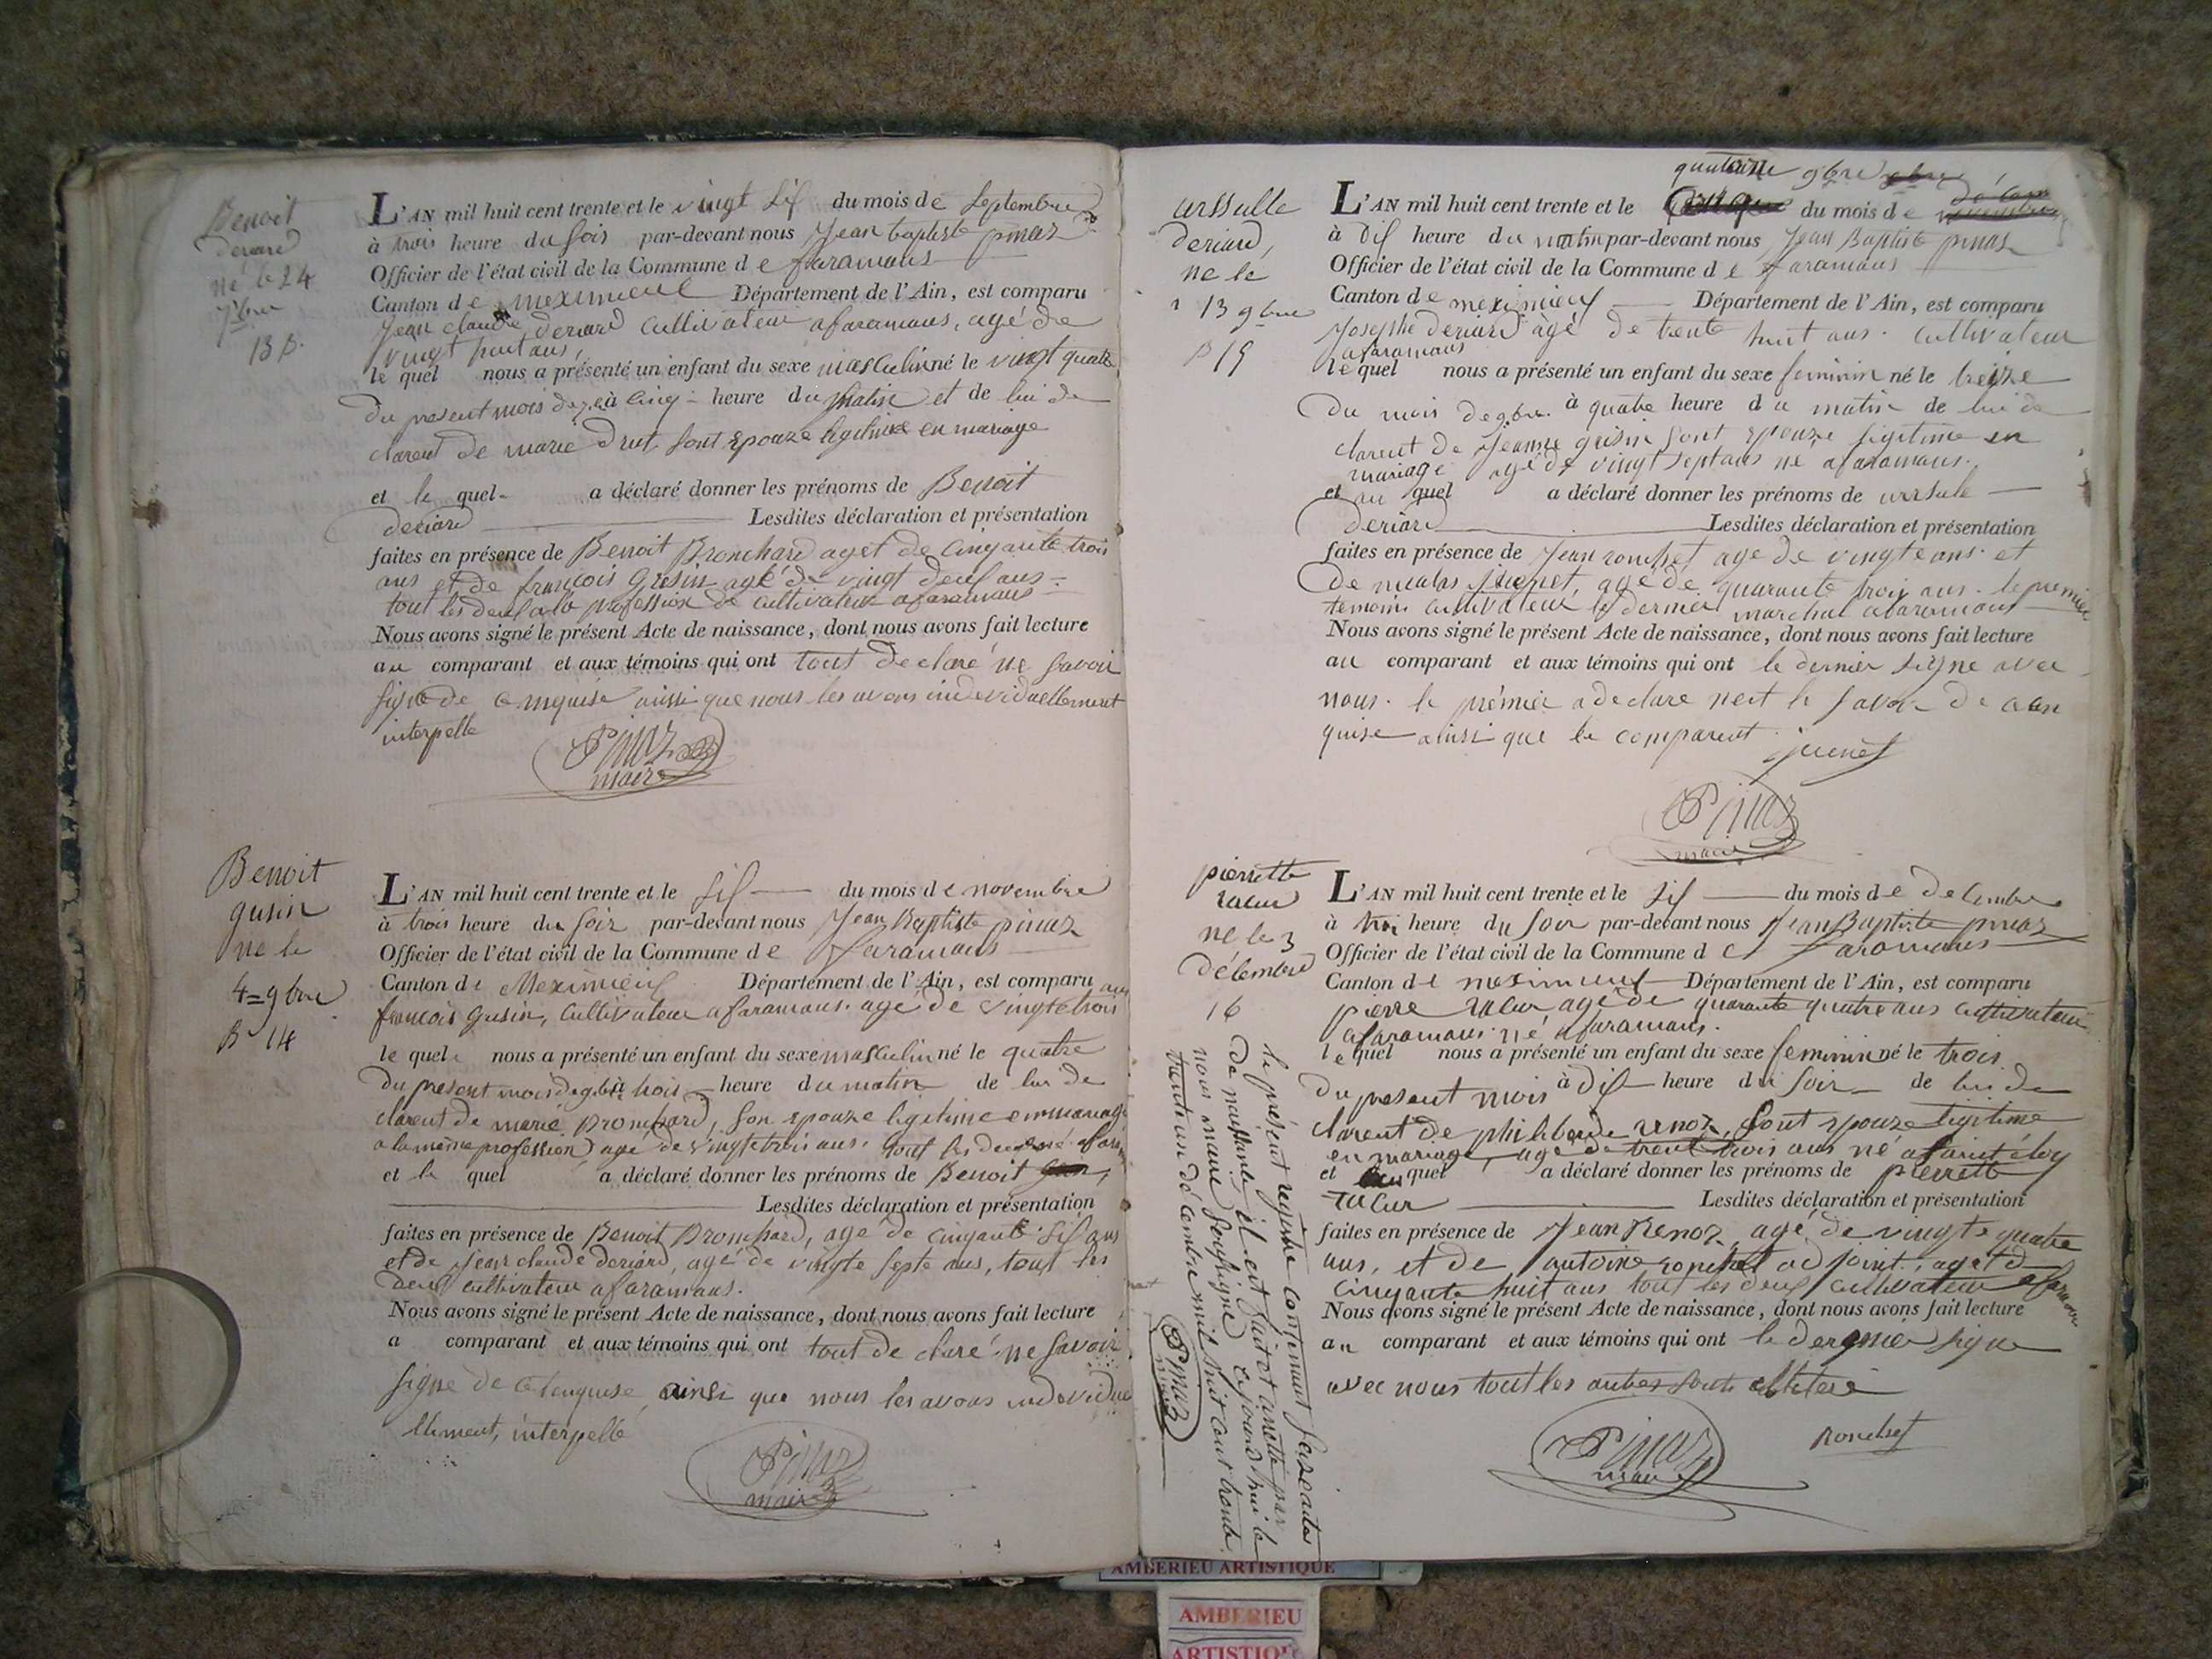 Benoit
deriard
né le 24
7bre
13 B.
L'AN mil huit cent trente et le vingt six du mois de Septembre
à trois heure du soir par-devant nous Jean baptiste pinaz
Officier de l'état civil de la Commune de faramans
Canton de meximieux Département de l'Ain, est comparu
Jean claude deriard cultivateur a faramans, agé de
vingt huit ans,
le quel nous a présenté un enfant du sexe masculin né le vingt quatre
du present mois de 7bre à cinq heure du matin et de lui de
clarent de marie drut sont epouze legitime en mariage
et le quel a déclaré donner les prénoms de Benoit
deriard Lesdites déclaration et présentation
faites en présence de Benoit Bronchard aget de cinqante trois
ans et de francois Grisin agé de vingt deux ans
tout les deux a la profession de cultivateur a faramans
Nous avons signé le présent Acte de naissance, dont nous avons fait lecture
au comparant et aux témoins qui ont tout declaré ne savoir
signé de enquise ainsi que nous les avons individuellement
interpelle
Pinaz
maire
Benoit
gusin
ne le
4=9bre
B 14
L'AN mil huit cent trente et le six du mois de novembre
à trois heure du soir par-devant nous Jean Baptiste pinaz
Officier de l'état civil de la Commune de faramans
Canton de Meximieux Département de l'Ain, est comparu
francois gusin, cultivateur a faramans. age de vingte trois ans
le quel nous a présenté un enfant du sexe masculin né le quatre
du present mois de 9bre à trois heure du matin de lui de
clarent de marie Bronchard, son epouze legitime en mariage
a la même profession agé de vingte trois ans. tout les deux né a faram
et le quel a déclaré donner les prénoms de Benoit
Lesdites déclaration et présentation
faites en présence de Benoit Bronchard, agé de cinqante six ans
et de jean claude deriard, agé de vingte septe ans, tout les
deux cultivateur a faramans.
Nous avons signé le présent Acte de naissance, dont nous avons fait lecture
a comparant et aux témoins qui ont tout de claré ne savoir
signe de ce enquise ainsi que nous les avons individue
llement, interpellé
Pinaz
maire
urssulle
deriard,
ne le
13 9bre
B 15
quatorze 9bre
L'AN mil huit cent trente et le du mois de
à dix heure du matin par-devant nous Jean Baptiste pinaz
Officier de l'état civil de la Commune de faramans
Canton de meximieux Département de l'Ain, est comparu
Josephe deriard àgé de trente huit ans. cultivateur
a faramans
le quel nous a présenté un enfant du sexe feminin né le treize
du mois de 9bre. à quatre heure du matin de lui de
clarent de Jeanne grisin sont epouze legitime en
mariage agé de vingt sept ans né a faramans.
et au quel a déclaré donner les prénoms de ursule
deriard Lesdites déclaration et présentation
faites en présence de Jean ronchet age de vingte ans. et
De nicolas juenet, age de quarante trois ans. le premier
temoin cultivateur le dernier marchal a faramans
Nous avons signé le présent Acte de naissance, dont nous avons fait lecture
au comparant et aux témoins qui ont le dernier signe avec
nous. le prémier a declare neit le savoir de aen
quise ainsi que le comparent juenet
Pinaz
maire
pierrette
raeur
né le 3
décembre
16
L'AN mil huit cent trente et le six du mois de decembre
à troi heure du soir par-devant nous Jean Baptiste pinaz
Officier de l'état civil de la Commune de faramans
Canton de meximieux Département de l'Ain, est comparu
pierre raeur agé de quarante quatre ans cultivateur
a faramans. né a faramans.
le quel nous a présenté un enfant du sexe feminin né le trois
du present mois à dix heure du soir de lui de
clarent de philiberde renoz, sont epouze legitime
en mariage, agé de trente trois ans né a saint éloy
et quel a déclaré donner les prénoms de pierrette
raeur Lesdites déclaration et présentation
faites en présence de Jean Renoz, agé de vingte quatre
ans, et de antoine ronchet adjoint, aget de
cinqante huit ans tout les deux cultivateur a faramans
Nous avons signé le présent Acte de naissance, dont nous avons fait lecture
au comparant et aux témoins qui ont le dernier signe
avec nous tout les autres sont illiteré
Pinaz
maire
Ronchet
le présent registre contenant seize actes
de naissante il est fait et arrette par
nous maire soussigné ajourd'hui le
trente un décembre mil huit cent trente
Pinaz
maire
AMBERIEU ARTISTIQUE
AMBERIEU
ARTISTIQUE